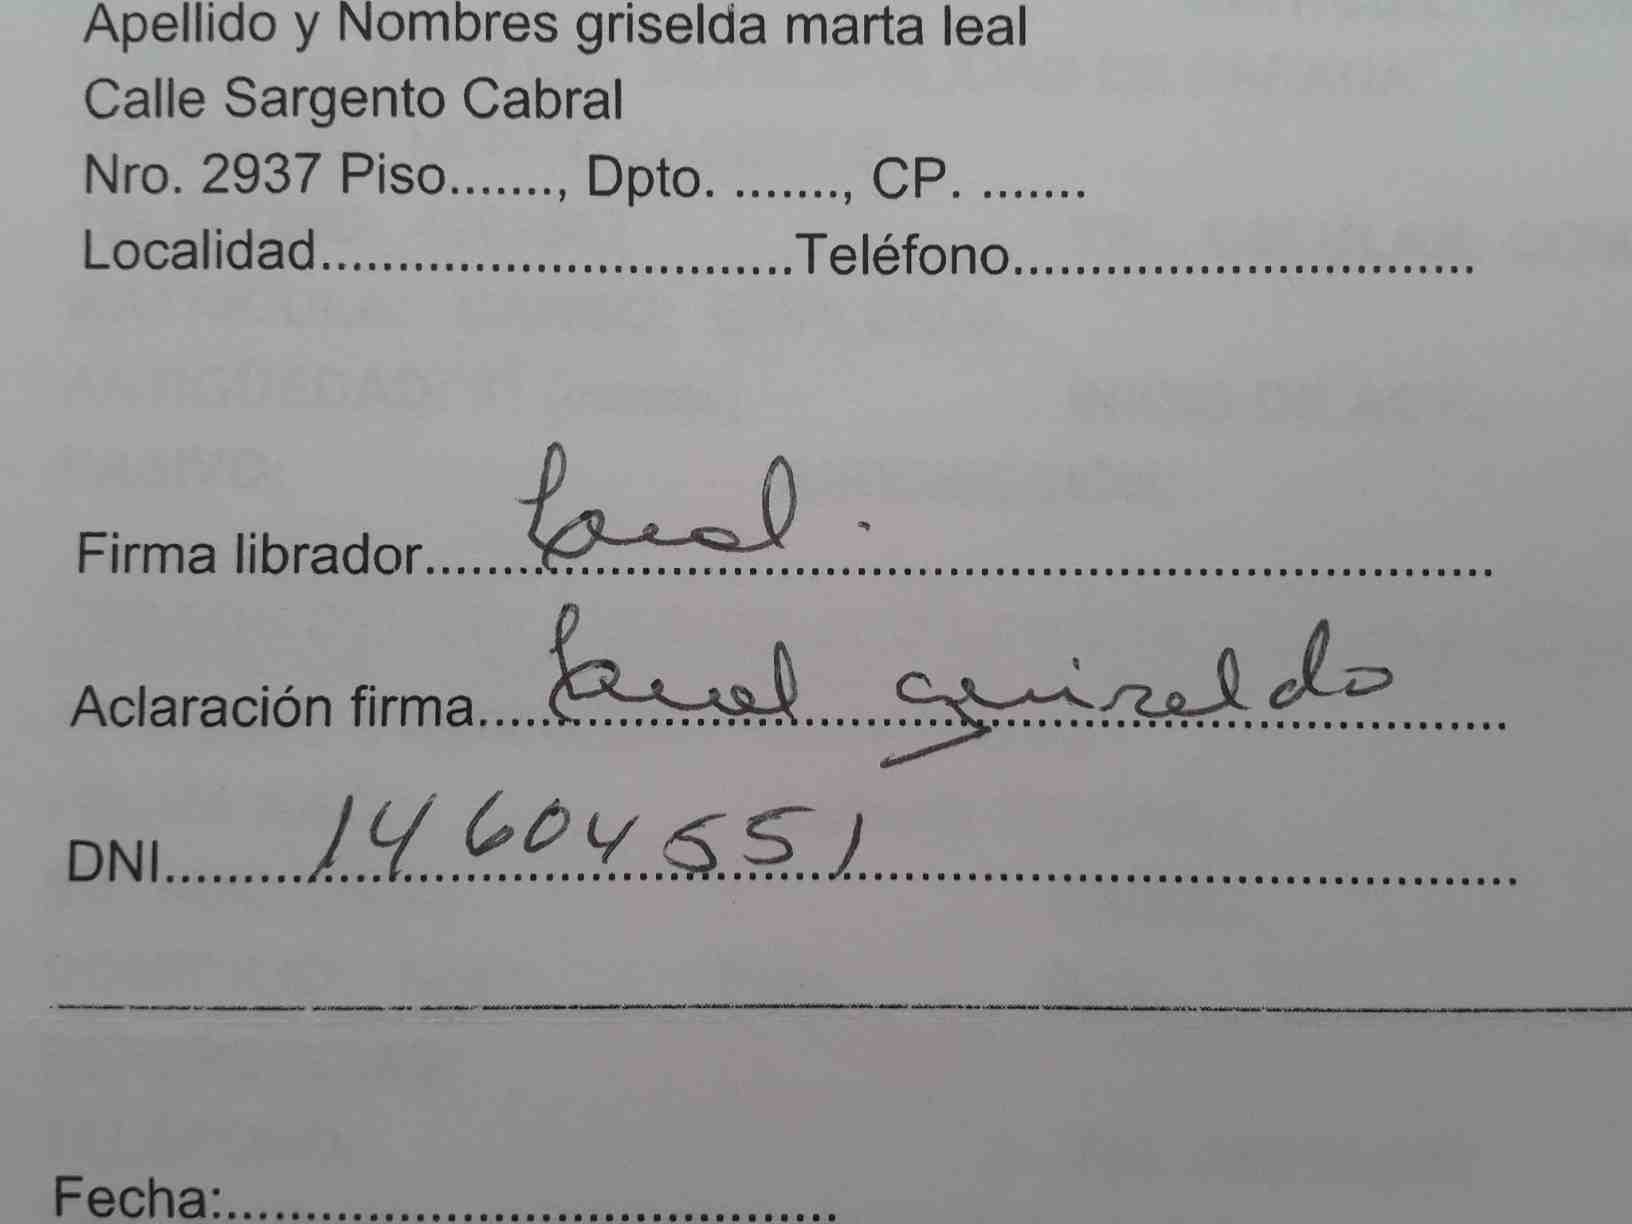 Apellido y Nombres griselda marta leal
Calle Sargento Cabral
Nro. 2937 Piso......., Dpto. ......., CP. .......
Localidad...............................Teléfono..............................
Firma librador.....Leal.....
Aclaración firma.....Leal griselda.....
DNI.........14604551.....
Fecha:........................................